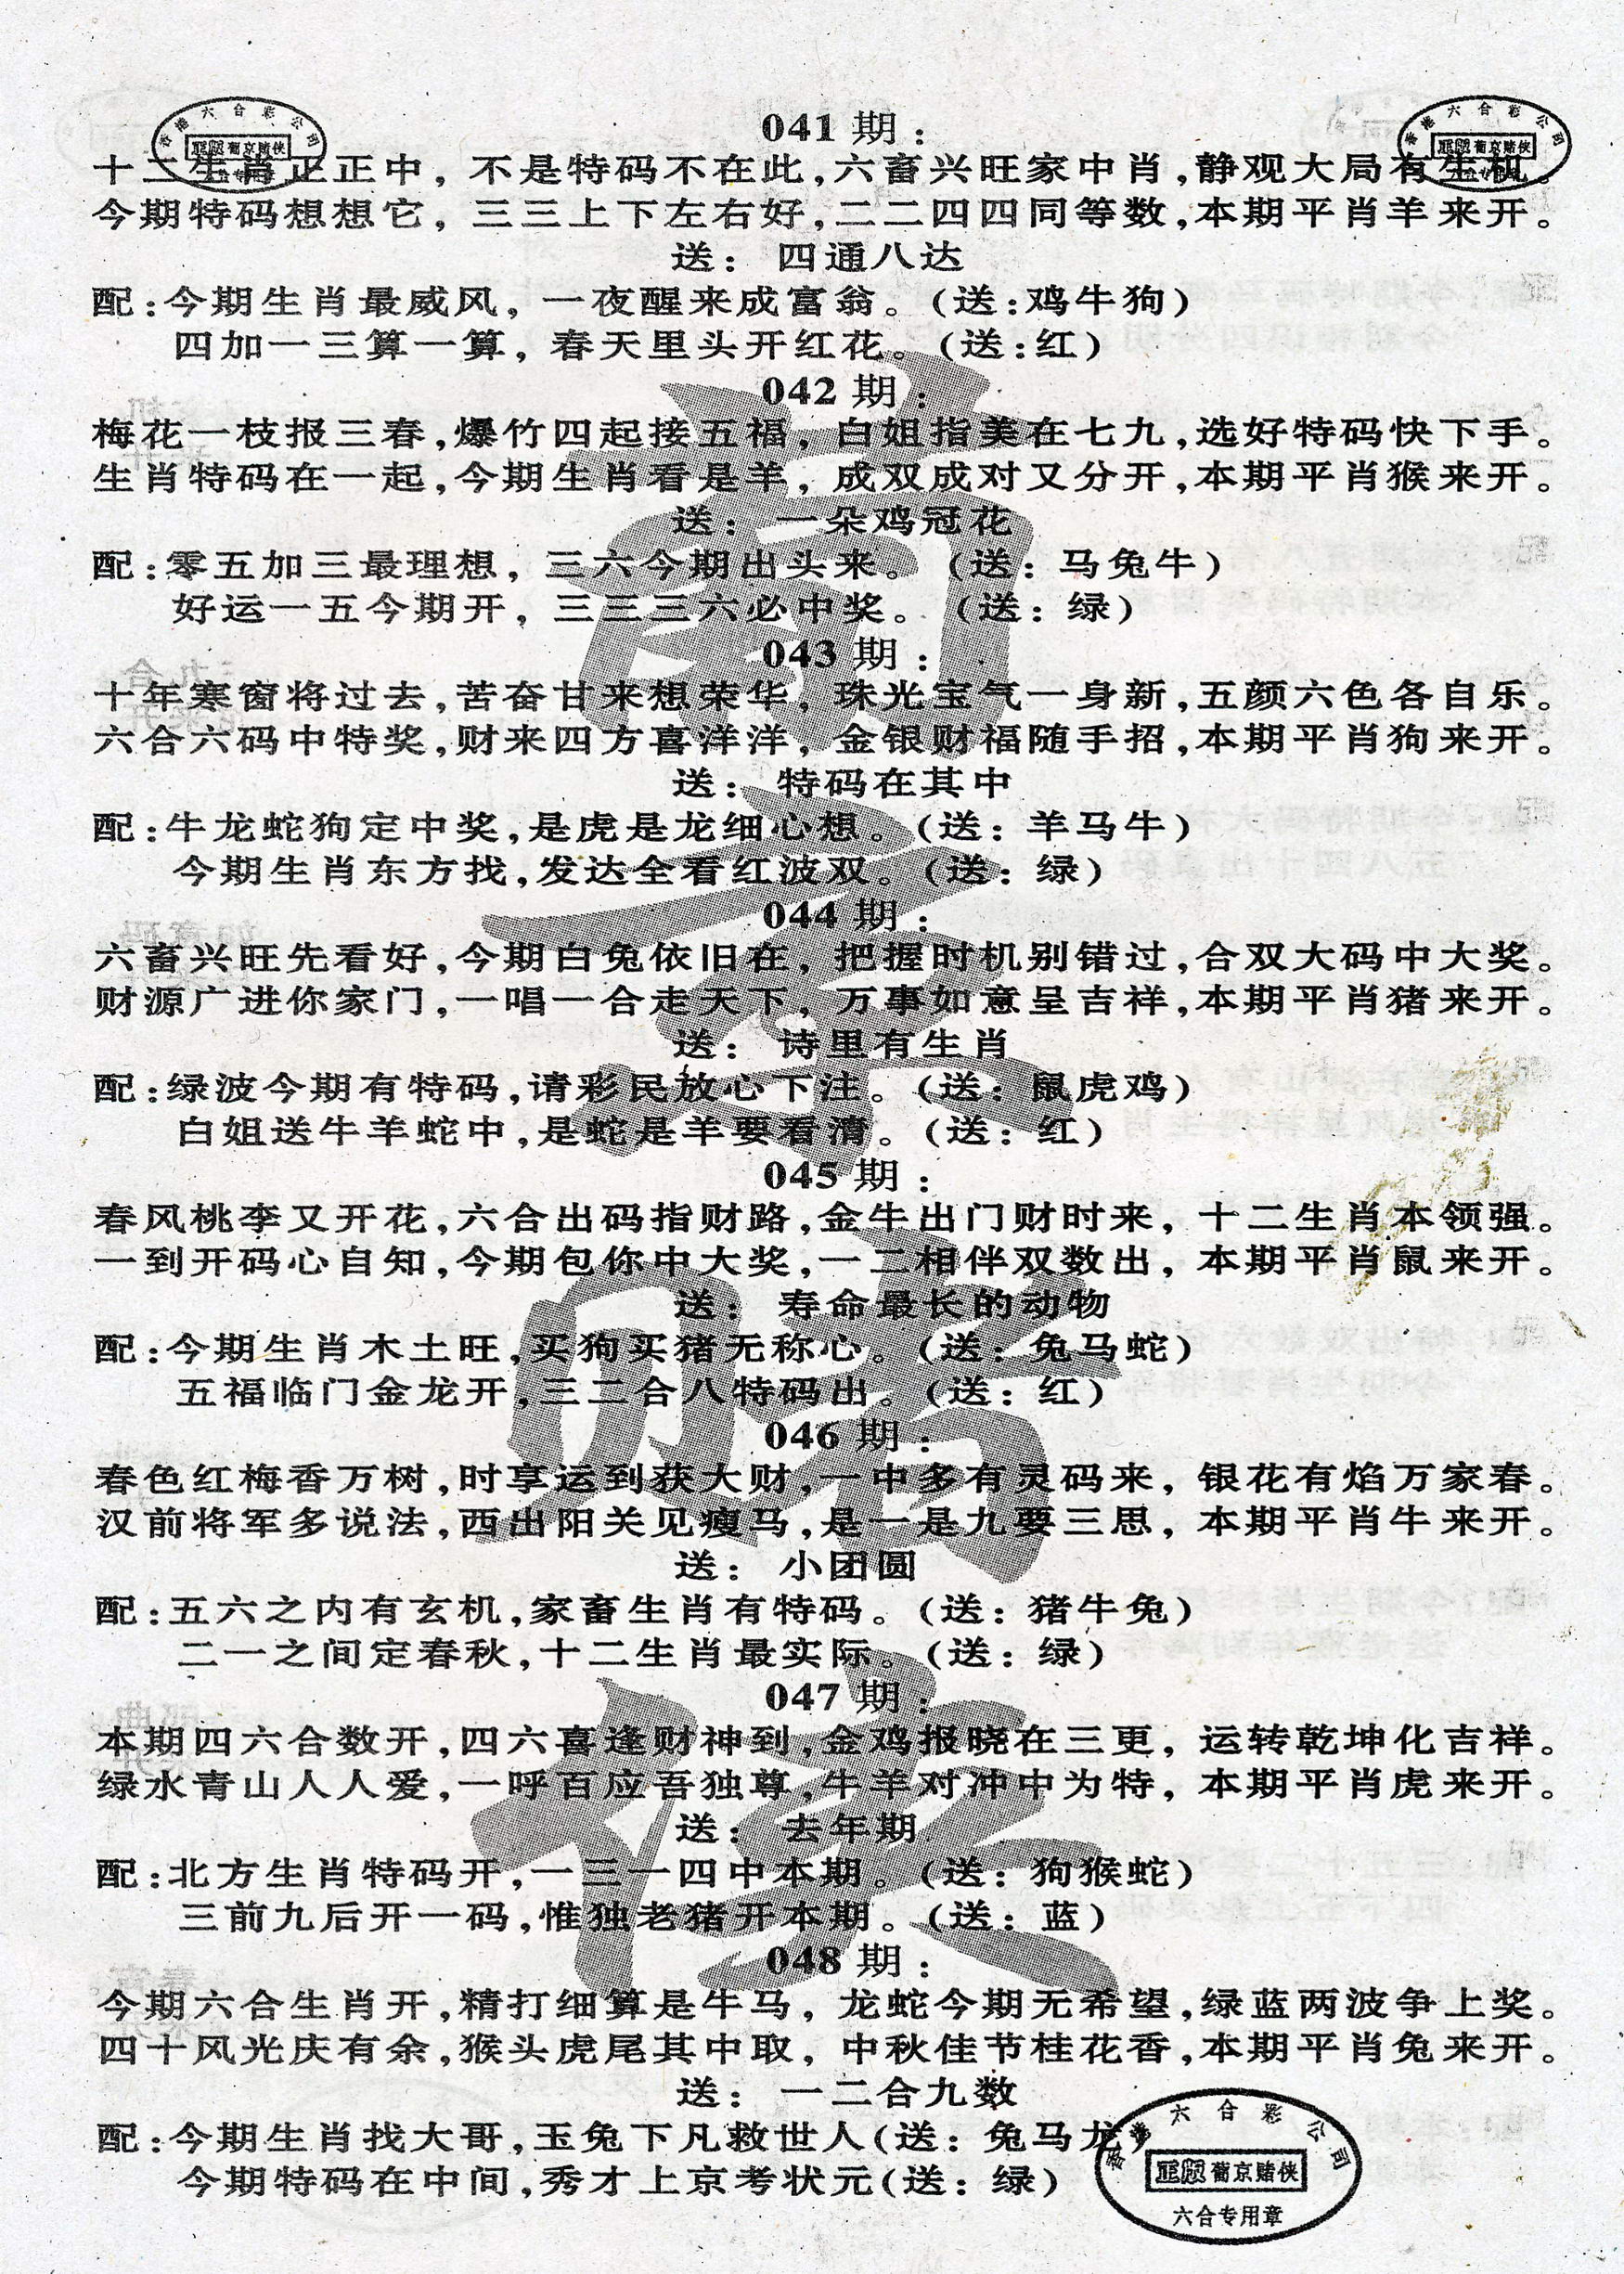 041期：
十二生肖正正中，不是特码不在此，六畜兴旺家中肖，静观大局有生机。
今期特码想想它，三三上下左右好，二二四四同等数，本期平肖羊来开。
送：四通八达
配：今期生肖最威风，一夜醒来成富翁。（送：鸡牛狗）
四加一三算一算，春天里头开红花。（送：红）
042期：
梅花一枝报三春，爆竹四起接五福，白姐指美在七九，选好特码快下手。
生肖特码在一起，今期生肖看是羊，成双成对又分开，本期平肖猴来开。
送：一朵鸡冠花
配：零五加三最理想，三六今期出头来。（送：马兔牛）
好运一五今期开，三三三六必中奖。（送：绿）
043期：
十年寒窗将过去，苦奋甘来想荣华，珠光宝气一身新，五颜六色各自乐。
六合六码中特奖，财来四方喜洋洋，金银财福随手招，本期平肖狗来开。
送：特码在其中
配：牛龙蛇狗定中奖，是虎是龙细心想。（送：羊马牛）
今期生肖东方找，发达全看红波双。（送：绿）
044期：
六畜兴旺先看好，今期白兔依旧在，把握时机别错过，合双大码中大奖。
财源广进你家门，一唱一合走天下，万事如意呈吉祥，本期平肖猪来开。
送：诗里有生肖
配：绿波今期有特码，请彩民放心下注。（送：鼠虎鸡）
白姐送牛羊蛇中，是蛇是羊要看清。（送：红）
045期：
春风桃李又开花，六合出码指财路，金牛出门财时来，十二生肖本领强。
一到开码心自知，今期包你中大奖，一二相伴双数出，本期平肖鼠来开。
送：寿命最长的动物
配：今期生肖木土旺，买狗买猪无称心。（送：兔马蛇）
五福临门金龙开，三二合八特码出。（送：红）
046期：
春色红梅香万树，时享运到获大财，一中多有灵码来，银花有焰万家春。
汉前将军多说法，西出阳关见瘦马，是一是九要三思，本期平肖牛来开。
送：小团圆
配：五六之内有玄机，家畜生肖有特码。（送：猪牛兔）
二一之间定春秋，十二生肖最实际。（送：绿）
047期：
本期四六合数开，四六喜逢财神到，金鸡报晓在三更，运转乾坤化吉祥。
绿水青山人人爱，一呼百应吾独尊，牛羊对冲中为特，本期平肖虎来开。
送：去年期
配：北方生肖特码开，一三一四中本期。（送：狗猴蛇）
三前九后开一码，惟独老猪开本期。（送：蓝）
048期：
今期六合生肖开，精打细算是牛马，龙蛇今期无希望，绿蓝两波争上奖。
四十风光庆有余，猴头虎尾其中取，中秋佳节桂花香，本期平肖兔来开。
送：一二合九数
配：今期生肖找大哥，玉兔下凡救世人（送：兔马龙）
今期特码在中间，秀才上京考状元（送：绿）
香港六合彩公司
正版葡京赌侠
六合专用章
香港六合彩公司
正版葡京赌侠
香港六合彩公司
正版葡京赌侠
葡京赌侠